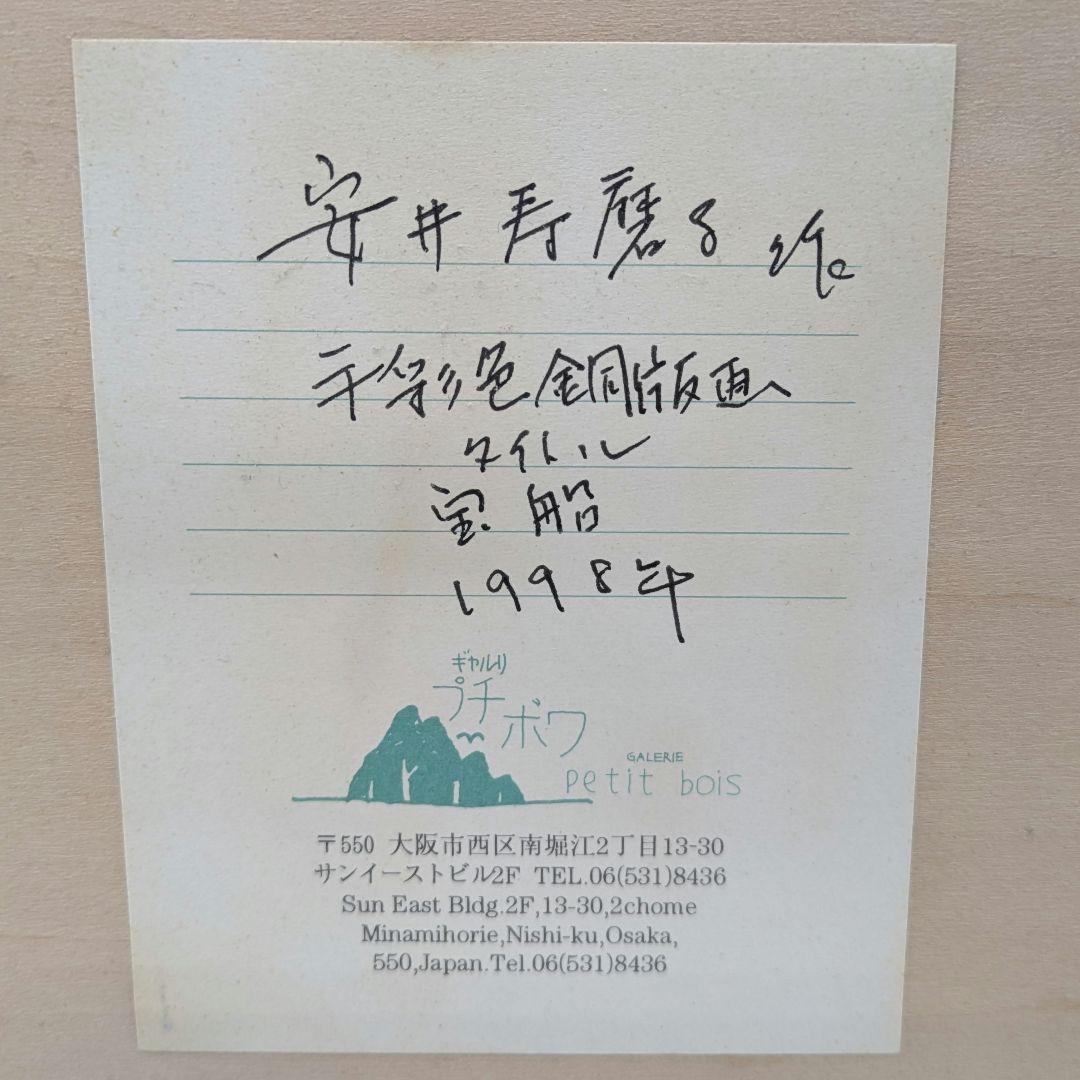 安井寿磨子作
手彩色銅版画
タイトル
宝船
1998年
ギャルリ
プチ
ボワ
GALERIE
petit bois
〒550 大阪市西区南堀江2丁目13-30
サンイーストビル2F TEL.06(531)8436
Sun East Bldg.2F,13-30,2chome
Minamihorie,Nishi-ku,Osaka,
550,Japan.Tel.06(531)8436